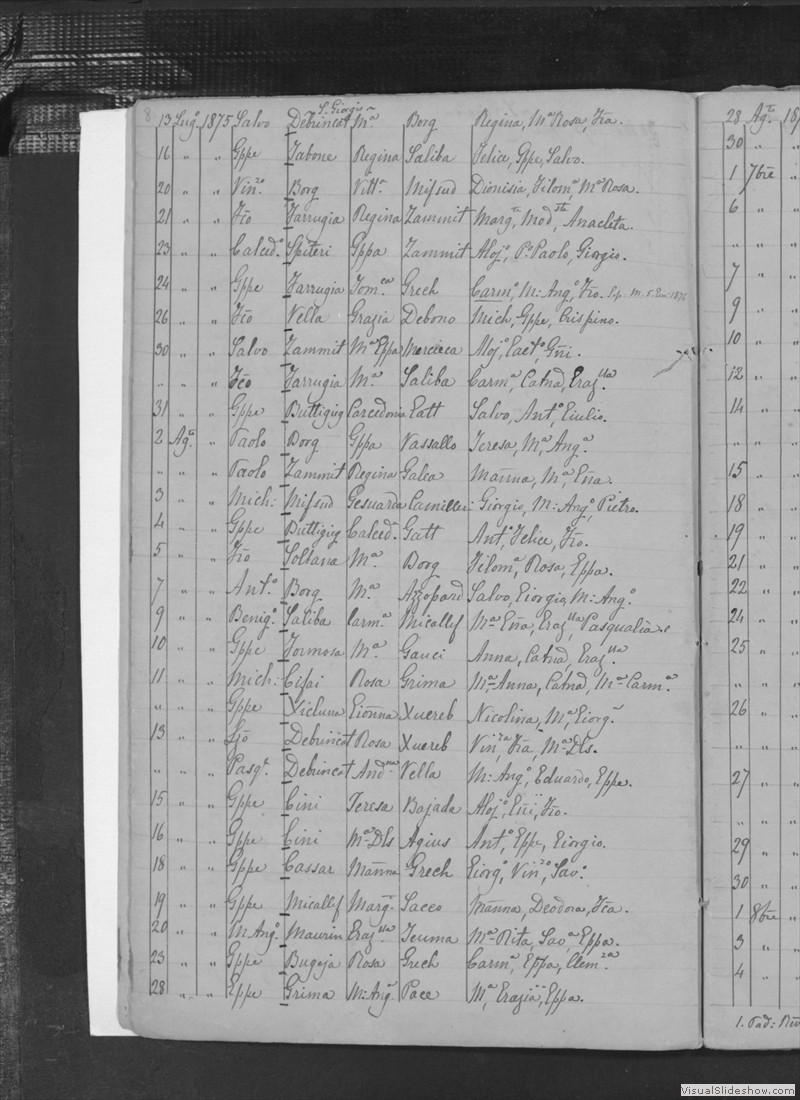 S. Giorgio
8 13 Lug.º 1875 Salvo Debrincat Mª Borg Regina, Mª Rosa, Fra.
16 " " Gppe Tabone Regina Saliba Felice, Gppe, Salvo.
20 " " Vinzº Borg Vittª Mifsud Dionisia, Filomª, Mª Rosa.
21 " " Fco Farrugia Regina Zammit Margta, Modsta, Anacleta.
23 " " Calcedº Spiteri Gppa Zammit Alojº, Pº Paolo, Giorgio.
24 " " Gppe Farrugia Tomca Grech Carmº, M: Angº, Fco.
26 " " Fco Vella Grazia Debono Mich, Gppe, Crispino.
30 " " Salvo Zammit Mª Gppa Mercieca Alojº, Gaetº, Gñi.
" " " Fco Farrugia Mª Saliba Carmª, Catnª, Grazlla.
31 " " Gppe Buttigieg Carcedonia Gatt Salvo, Antº, Giulio.
2 Agto " Paolo Borg Gppa Vassallo Teresa, Mª, Angª
" " " Paolo Zammit Regina Galea Mañna, Mª, Gña.
3 " " Mich: Mifsud Gesuarda Camilleri: Giorgio, M: Angº, Pietro.
4 " " Gppe Buttigieg Calced. Gatt Antº, Felice, Fco.
5 " " Fco Soltana Mª Borg Filomª, Rosa, Gppa.
7 " " Antº Borg Mª Azzopard Salvo, Giorgia, M: Angº
9 " " Benigº Saliba Carmª Micallef Mª Gña, Grazlla, Pasqualina
10 " " Gppe Formosa Mª Gauci Anna, Catnª, Grazlla
11 " " Mich: Cifai Rosa Grima Mª Anna, Catnª, Mª Carmª
" " " Gppe Xicluna Gioñna Xuereb Nicolina, Mª, Giorgª
13 " " Debrincat Rosa Xuereb Vinza, Fra, Mª Dls.
" " " Pasqº. Debrincat Andna Vella M: Angº, Eduardo, Gppe.
15 " " Gppe Cini Teresa Bajada Alojº, Gñi, Fco.
16 " " Gppe Cini Mª Dls Agius Antº, Gppe, Giorgio.
18 " " Gppe Cassar Mañna Grech Giorgº, Vinzº, Savº
19 " " Gppe Micallef Margª Sacco Mañna, Deodora, Fca.
20 " " M: Angº. Maurin Grazlla Teuma Mª Rita, Savª, Gppa.
23 " " Gppe Bugeja Rosa Grech Carmª, Gppa, Clemza
28 " " Gppe Grima M: Angª Pace Mª, Grazia, Gppa.
28 Agto 187
30 "
1 7bre "
6 "
" "
7 "
9 "
10 "
12 "
14 "
" "
15 "
18 "
19 "
21 "
22 "
24 "
25 "
" "
26 "
" "
27 "
" "
29 "
30 "
1 8bre "
3 "
4 "
VisualSlideshow.com